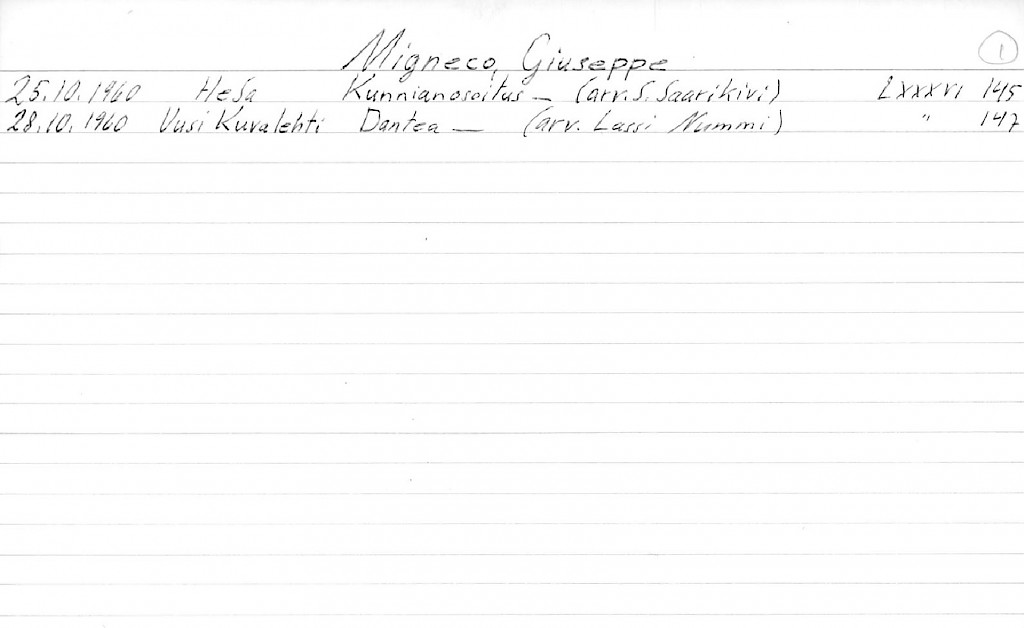 Migneco, Giuseppe 1
25.10.1960 HeSa Kunnianosoitus — (arv. S. Saarikivi) LXXXVI 145
28.10.1960 Uusi Kuvalehti Dantea — (arv. Lassi Nummi) " 147